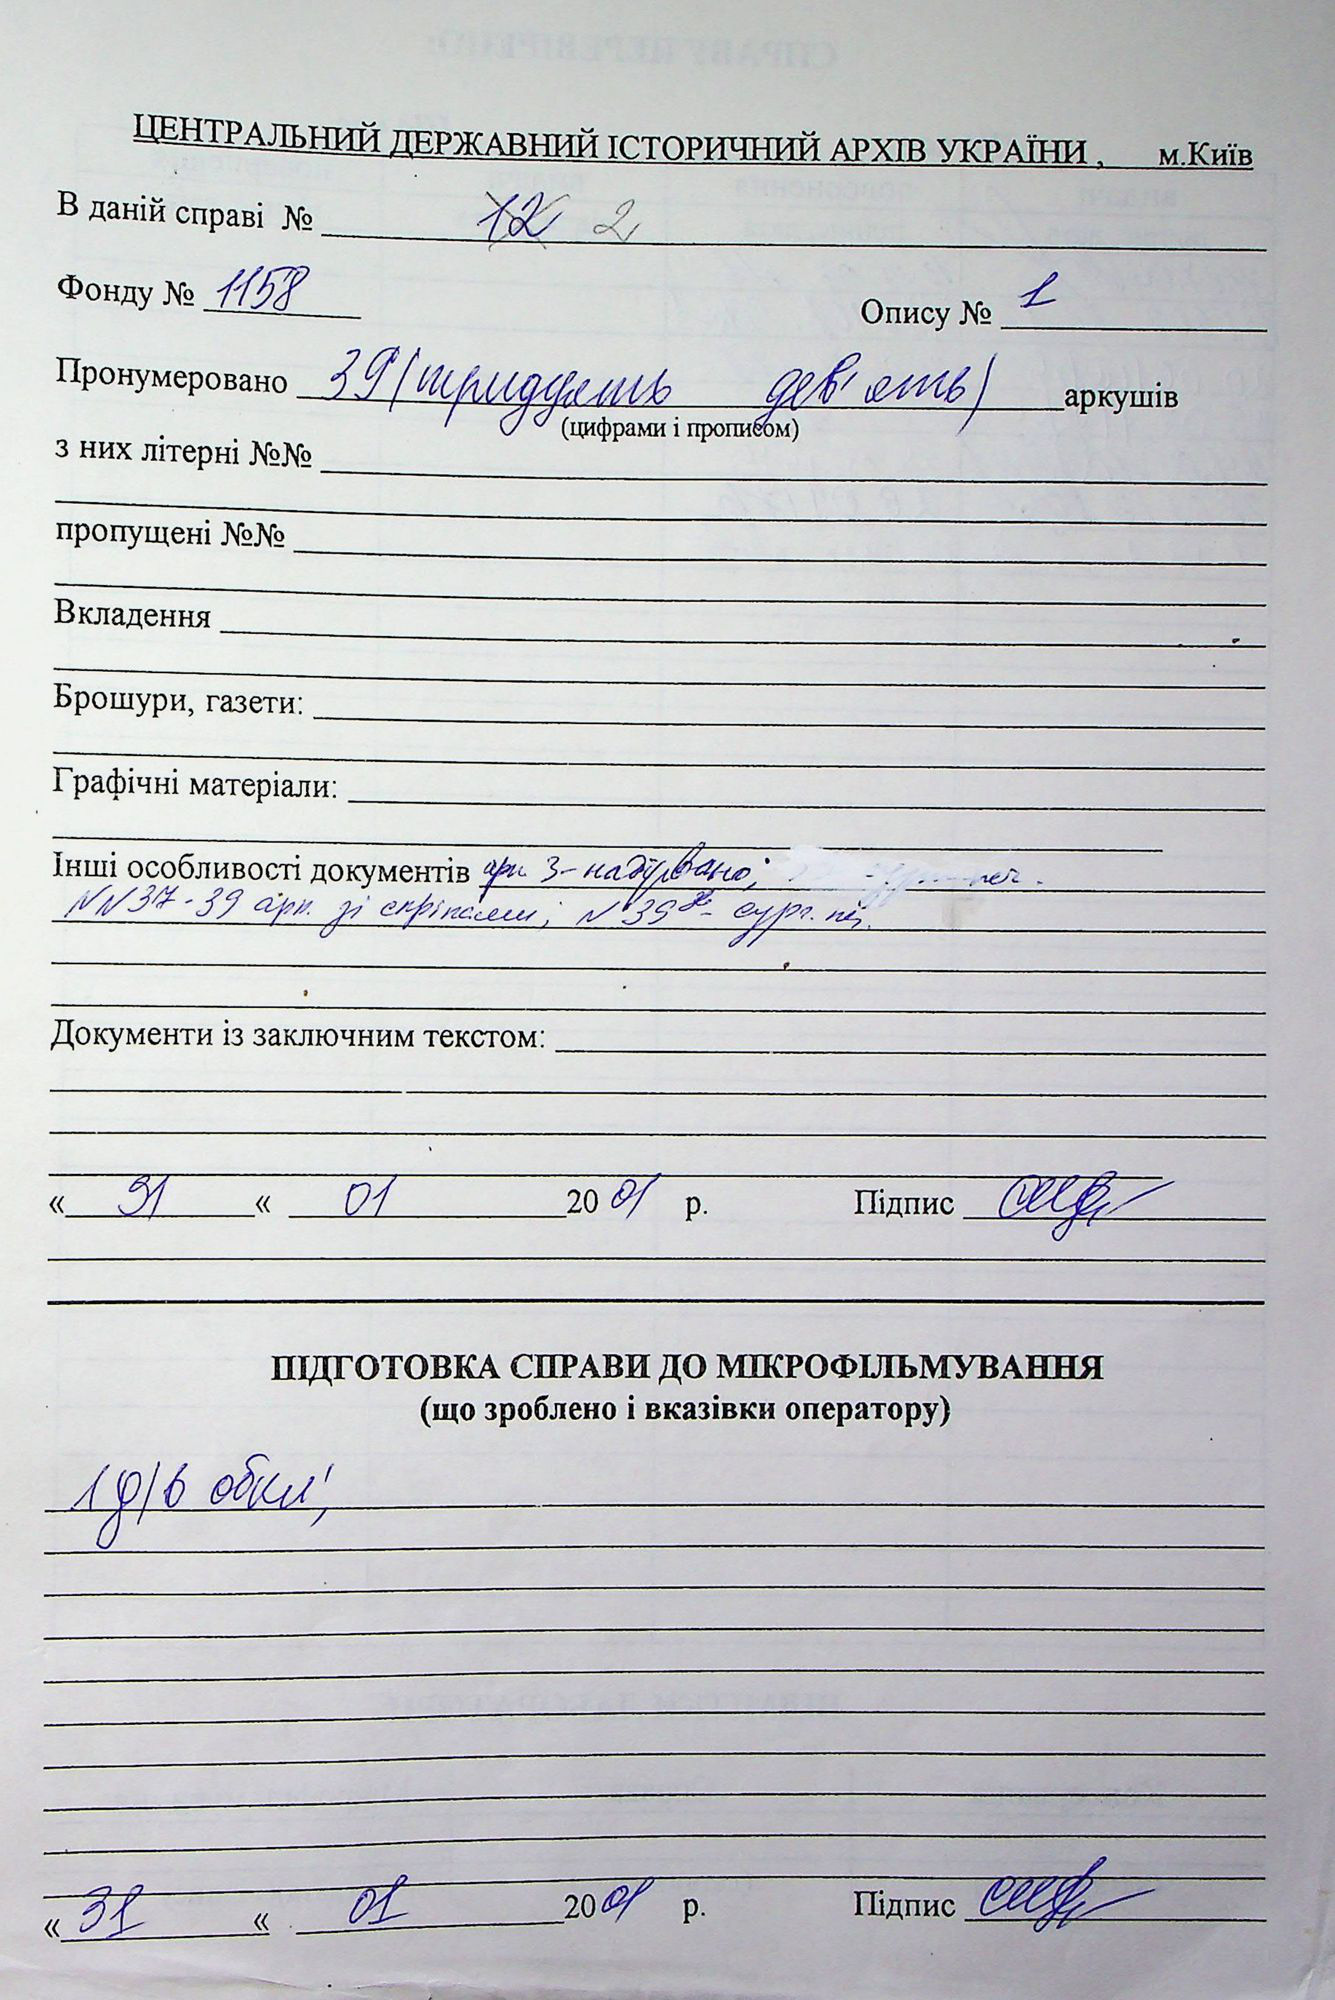 ЦЕНТРАЛЬНИЙ ДЕРЖАВНИЙ ІСТОРИЧНИЙ АРХІВ УКРАЇНИ , м.Київ
В даній справі № 12 2
Фонду № 1158 Опису № 1
Пронумеровано 39 (тридцять дев'ять) аркушів
(цифрами і прописом)
з них літерні №№
пропущені №№
Вкладення
Брошури, газети:
Графічні матеріали:
Інші особливості документів арк. 3 - надірвано;
NN 37-39 арк. зі скріпами; N 39 - сург. печ.
Документи із заключним текстом:
« 31 « 01 2001 р. Підпис
ПІДГОТОВКА СПРАВИ ДО МІКРОФІЛЬМУВАННЯ
(що зроблено і вказівки оператору)
1 д/в обкл;
« 31 « 01 2001 р. Підпис